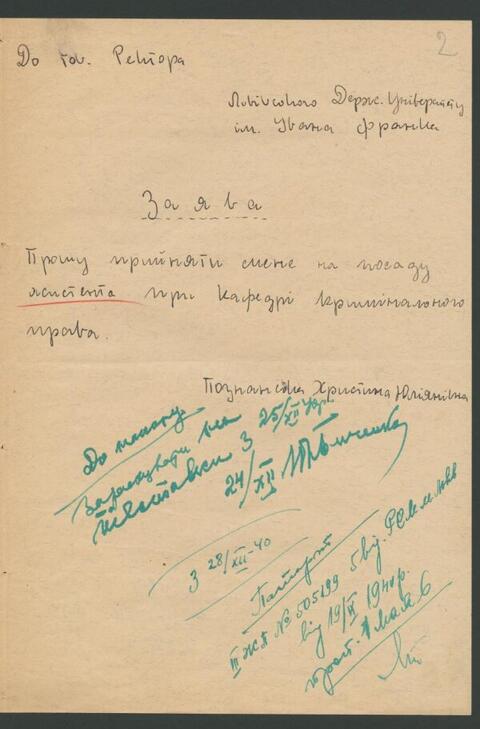 2
До тов. Ректора
Львівського Держ. Університету
ім. Івана Франка
Заява
Прошу прийняти мене на посаду
асистента при Кафедрі Кримінального
права.
Познанська Христина Юліянівна
До наказу
Зарахувати на
з 25/XII 40р.
24/XII
з 28/XII-40
Паспорт
III ЖЯ № 505199 5 від. РСМ м. Львів
від 19/II 1940р.
1 мая 6